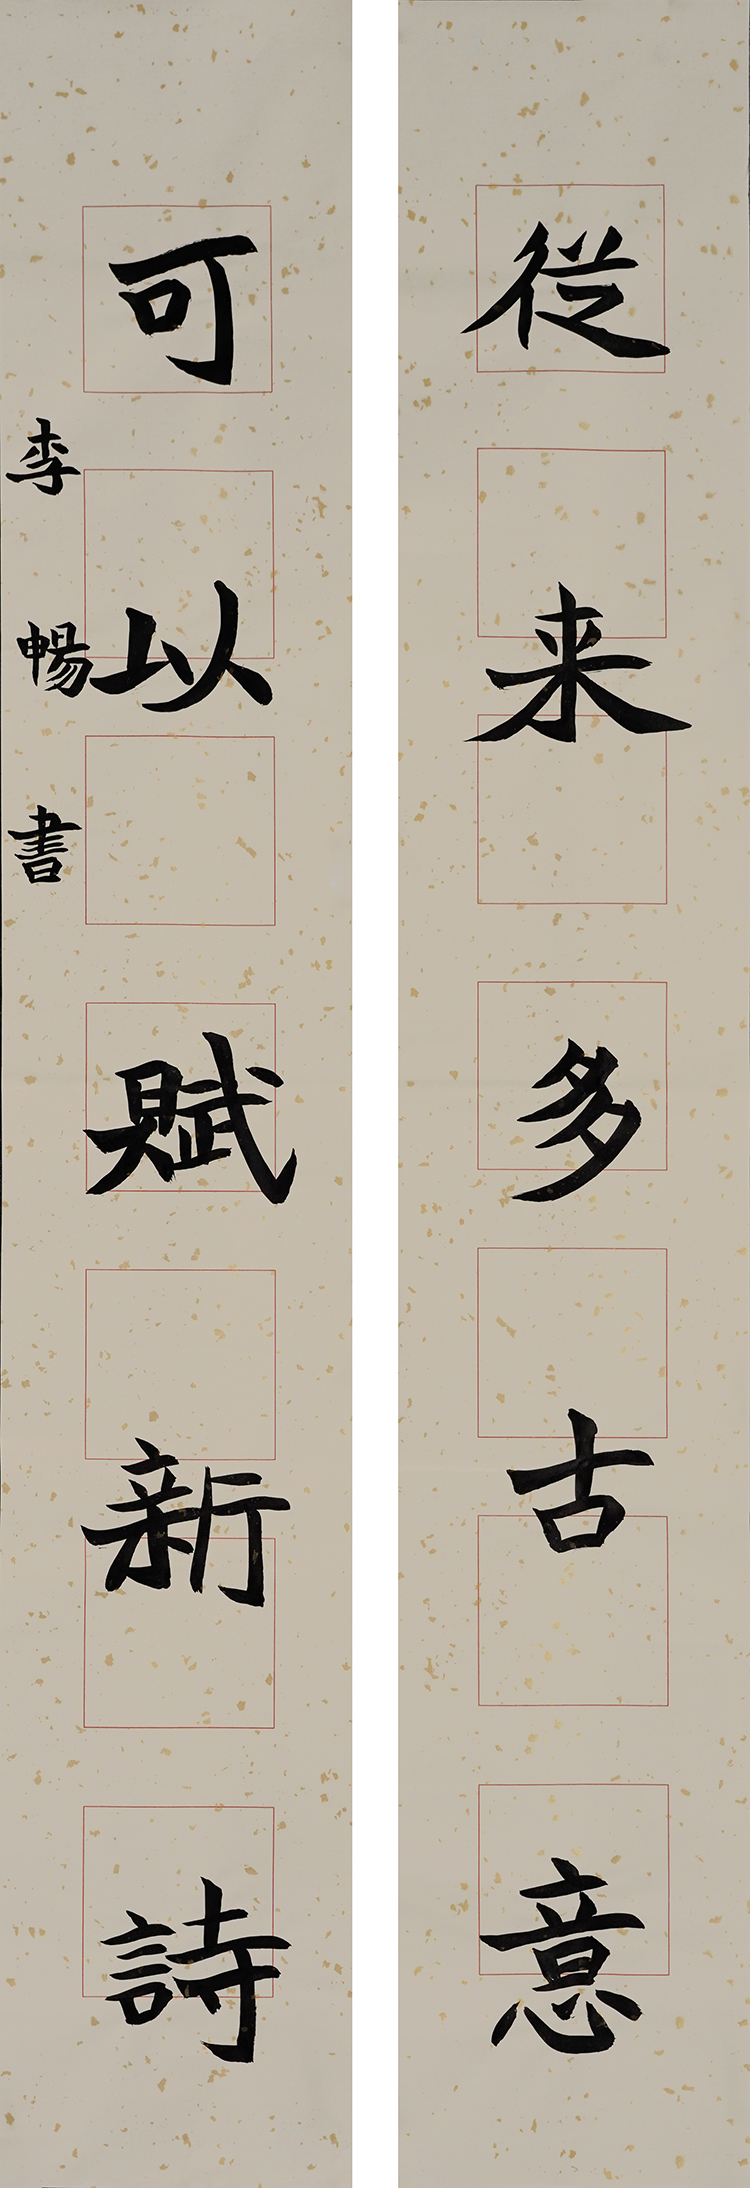 從来多古意
可以賦新詩
李暢書